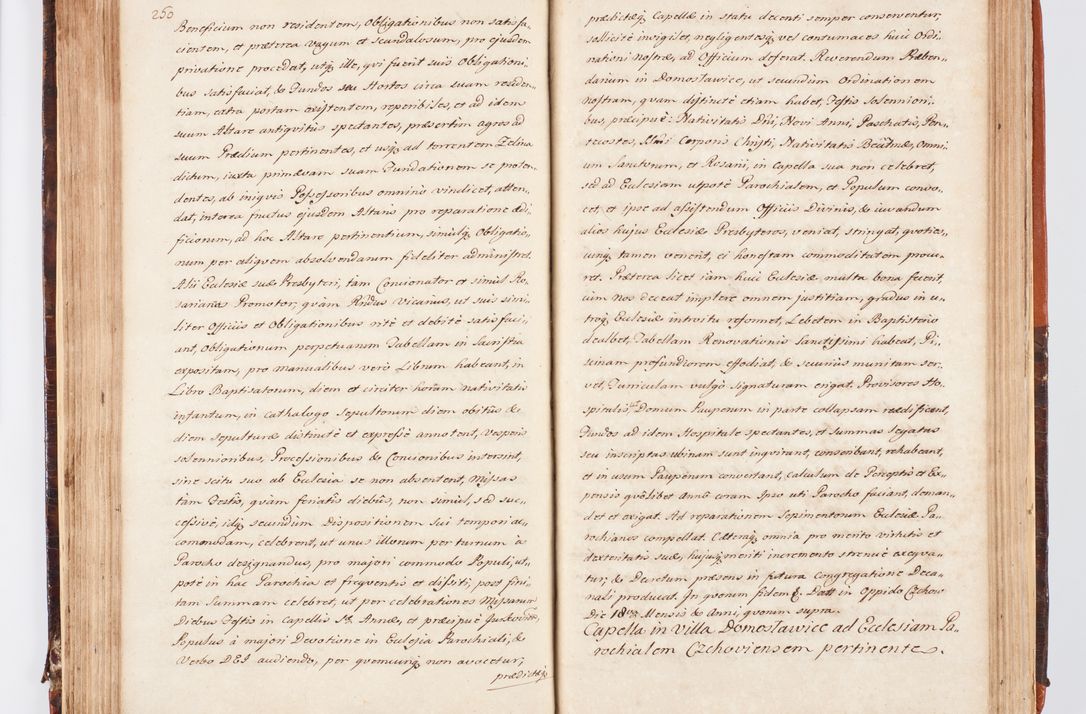 250
Beneficium non residentem, Obligationibus non satisfa„
cientem, et præterea vagum et scandalosum, pro ejusdem
privatione procedat, utq́ ille, qvi fuerit suis Obligationi„
bus satisfaciat, & Fundos seu Hortos circa suam residen„
tiam, extra portam existentem, reperibiles, et ad idem
suum Altare antiqvitùs spectantes, præsertim agros ad
suum Prædium pertinentes, et usq́ ad torrentem Zelina
dictum, iuxta primævam suam Fundationem se proten„
dentes, ab iniqvis Possessoribus omnino vindicet, atten„
dat, interea fructus ejusdem Altaris pro reparatione ædi„
ficiorum, ad hoc Altare pertinentium, simulq́ Obligatio„
num per aliqvem absolvendarum fideliter administret.
Alii Ecclesiæ suæ Presbyteri, tam Concionator et simul Ro„
sarianus Promotor, qvàm Rndus Vicarius, ut suis simi„
liter Officiis et Obligationibus ritè et debitè satisfaci„
ant, Obligationum perpetuarum Tabellam in Sacristia
expositam, pro manualibus verò Librum habeant, in
Libro Baptisatorum, diem et circiter horam nativitatis
infantum, in cathalogo sepultorum diem obitûs &
diem sepulturæ distinctè et expressè annotent, Vesperis
solennioribus, Processionibus & Concionibus intersint,
sine scitu suo ab Ecclesia se non absentent, Missas
tam Festis, qvàm feriatis diebus, non simul, sed suc„
cessivè, idq́ secundùm dispositionem sui tempori ac„
comodam, celebrent, ut unus illorum per turnum à
Parocho designandus, pro majori commodo Populi, ut„
potè in hac Parochia et freqventis et dissiti, post fini„
tam Summam celebret, ut per celebrationes Missarum
Diebus Festis in Capellis S. Annæ, et præcipuè
Populus à majori Devotione in Ecclesia Parochiali, &
Verbo DEI audiendo, per qvemcunq́ non avocetur,
prædictæq́
prædictæq́ Capellæ in statu decenti semper conserventur,
sollicitè invigilet, negligentesq́ vel contumaces huic Ordi„
nationi nostræ, ad Officium deferat. Reverendum Præben„
darium in Domosławice, ut secundùm Ordinationem
nostram, qvam distinctè etiam habet, Festis solennioni„
bus, præcipuè: Nativitatis Dni, Novi Anni, Paschatis, Pen„
tecostes, SSmi Corporis Christi, Nativitatis Beatmæ, Omni„
um Sanctorum, et Rosarii, in Capella sua non celebret,
sed ad Ecclesiam utpotè Parochialem, et Populum convo„
cet, et ipse ad assistendum Officiis Divinis, & iuvandum
alios hujus Ecclesiæ Presbyteros, veniat, stringat, qvoties„
cunq́ tamen venerit, ei honestam commoditatem procu„
ret. Præterea licet iam huic Ecclesiæ multa bona fecerit,
cùm nos deceat implere omnem justitiam, gradus in u„
troq́ Ecclesiæ introitu reformet, Lebetem in Baptisterio
dealbet, Tabellam Renovationis Sanctissimi habeat, Pi„
scinam profundiorem effodiat, & securius munitam ser„
vet, Furniculam vulgò Signaturam erigat. Provisores Ho„
spitalis ut Domum Pauperum in parte collapsam reædificent,
Fundos ad idem Hospitale spectantes, et summas legatas
seu inscriptas ubinam sunt inqvirant, conscribant, rehabeant,
et in usum Pauperum convertant, calculum de Perceptis et Ex„
pensis qvôlibet Annô coram Ipso uti Parocho faciant, deman„
det et exigat. Ad reparationem Sepimentorum Ecclesiæ Pa„
rochianos compellat. Cæteraq́ omnia pro merito virtutis et
dexteritatis suæ, hujusq́ meriti incremento strenuè exeqva„
tur, & Decretum præsens in futura Congregatione Deca„
nali producat. In qvorum fidem &. Datt in Oppido Czchow
Die 18va Mensis & Anni, qvorum supra.
Capella in villa Domosławice ad Ecclesiam Pa„
rochialem Czchoviensem pertinente.